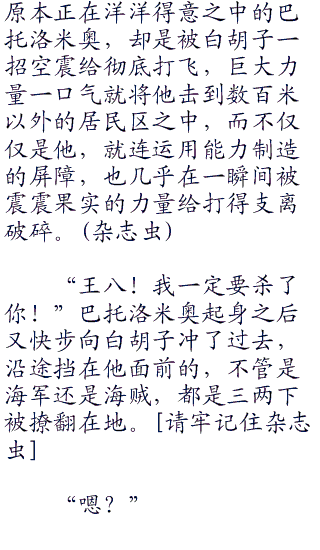 原本正在洋洋得意之中的巴
托洛米奥，却是被白胡子一
招空震给彻底打飞，巨大力
量一口气就将他击到数百米
以外的居民区之中，而不仅
仅是他，就连运用能力制造
的屏障，也几乎在一瞬间被
震震果实的力量给打得支离
破碎。(杂志虫)
“王八！我一定要杀了
你！”巴托洛米奥起身之后
又快步向白胡子冲了过去，
沿途挡在他面前的，不管是
海军还是海贼，都是三两下
被撩翻在地。[请牢记住杂志
虫]
“嗯？”